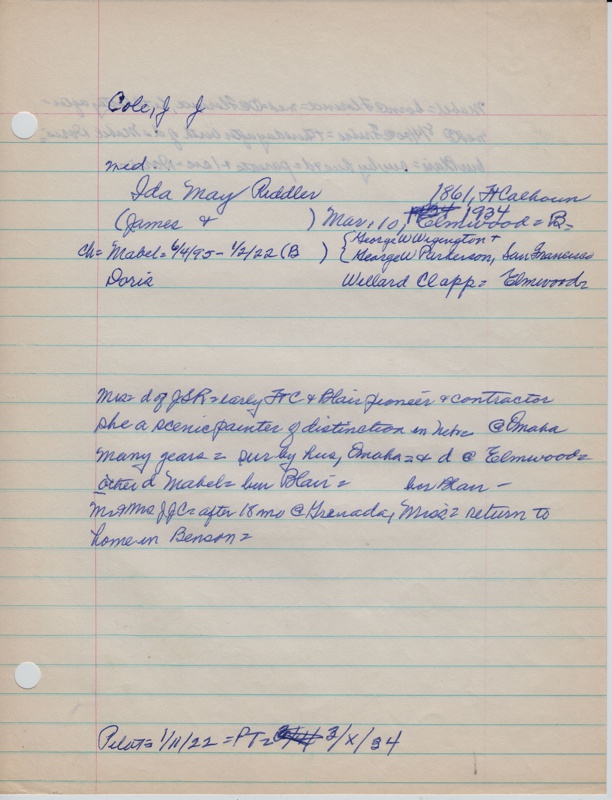 Cole, J J
md
Ida May Riddler 1861, Ft Calhoun
(James & ) Mar, 10, 1934 Elmwood = B=
ch = Mabel = 6/4/95 - 1/2/22 (B ) { George W Wigington +
George W Perkerson, San Francisco
Doris Willard Clapp = Elmwood=
Mrs= d of JSR = early Ft C & Blair pioneer & contractor
she a scenic painter of distinction in Nebr @ Omaha
many years = sur by hus, Omaha = & d @ Elmwood=
other d Mabel = bur Blair = bur Blair -
Mr & Mrs JJC = after 18 mo @ Grenada, Miss = return to
home in Benson =
Pilot= 1/11/22 = PT= 3/X/34